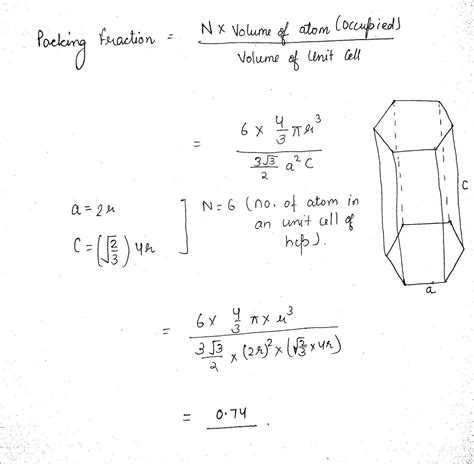 Packing Fraction = N × Volume of atom (occupied) / Volume of Unit Cell
= 6 × 4/3 π r³ / 3√3/2 a² C
a = 2r
C = (√2/3) 4r
N = 6 (no. of atom in
an unit cell of
hcp).
C
a
= 6 × 4/3 π × r³ / 3√3/2 × (2r)² × (√2/3 × 4r)
= 0.74.